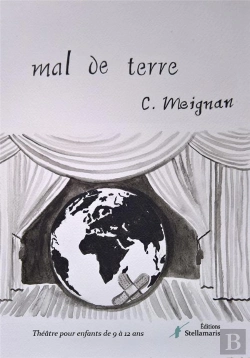 mal de terre
C. Meignan
Théâtre pour enfants de 9 à 12 ans
Éditions
Stellamaris
B